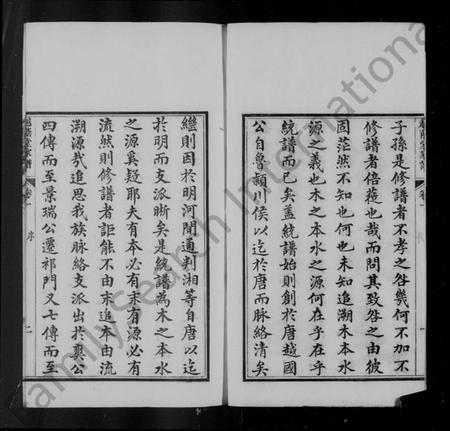 子孫是修譜者不孝之咎幾何不加不
修譜者倍蓰也哉而問其致咎之由彼
固茫然不知也何也未知追溯木本水
源之義也木之本水之源何在乎在乎
統譜而已矣蓋統譜始則創於唐越國
公自魯潁川侯以迄於唐而脉絡清矣
繼則因於明河間通判湘等自唐以迄
於明而支派晰矣是統譜為木之本水
之源奚疑耶夫有本必有末有源必有
流然則修譜者詎能不由末追本由流
溯源哉追思我族脉絡支派出於奠公
四傳而至景瑞公遷祁門又七傳而至
序
二
卷一
一
FamilySearch International